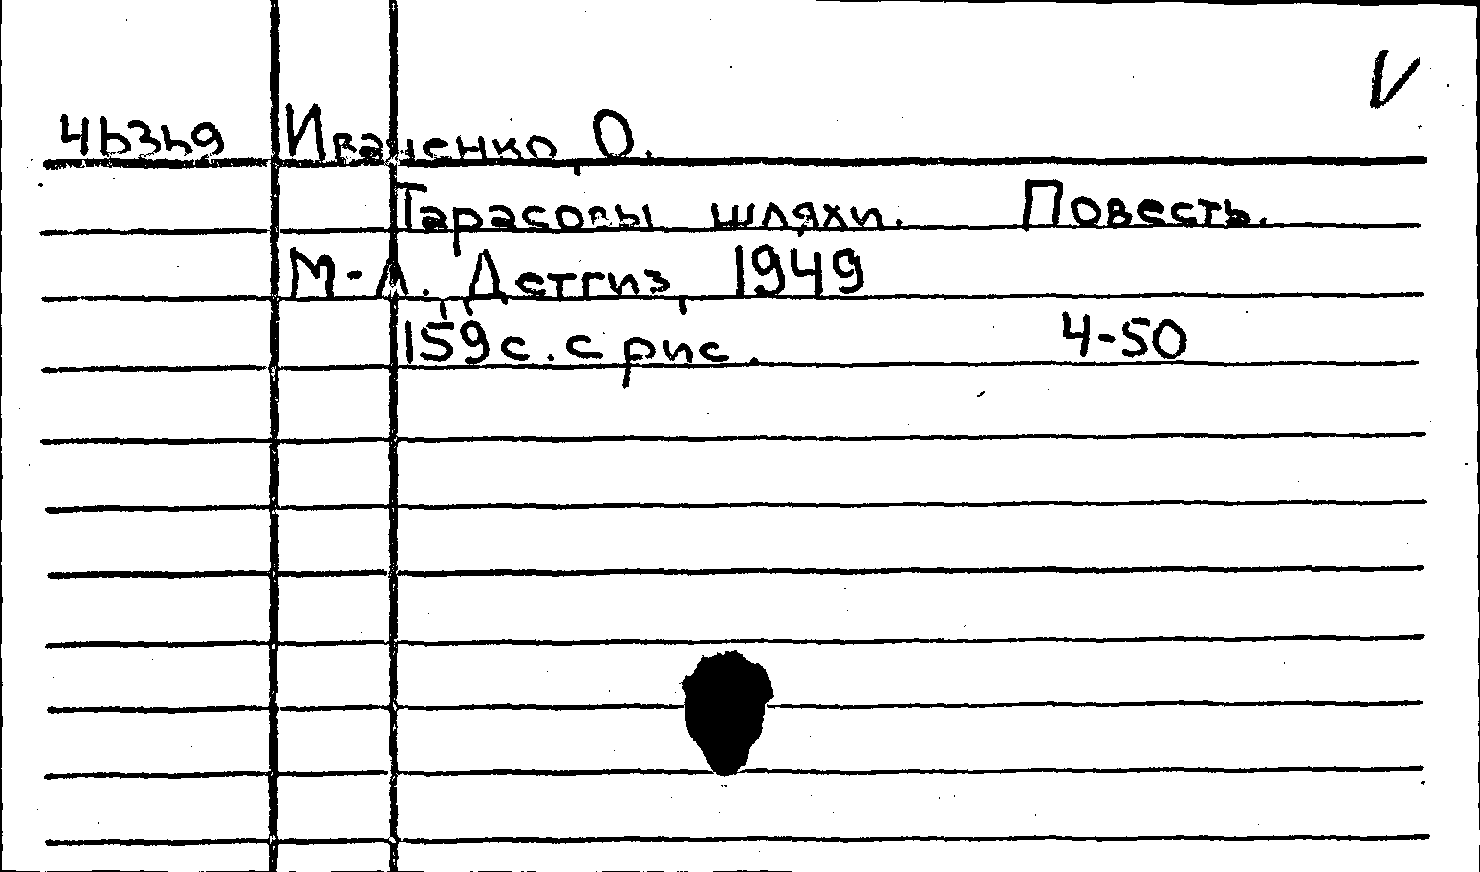 V
Иваненко, О.
Тарасовы шляхи. Повесть.
М-Л., Детгиз, 1949
159с. с рис. 4-50